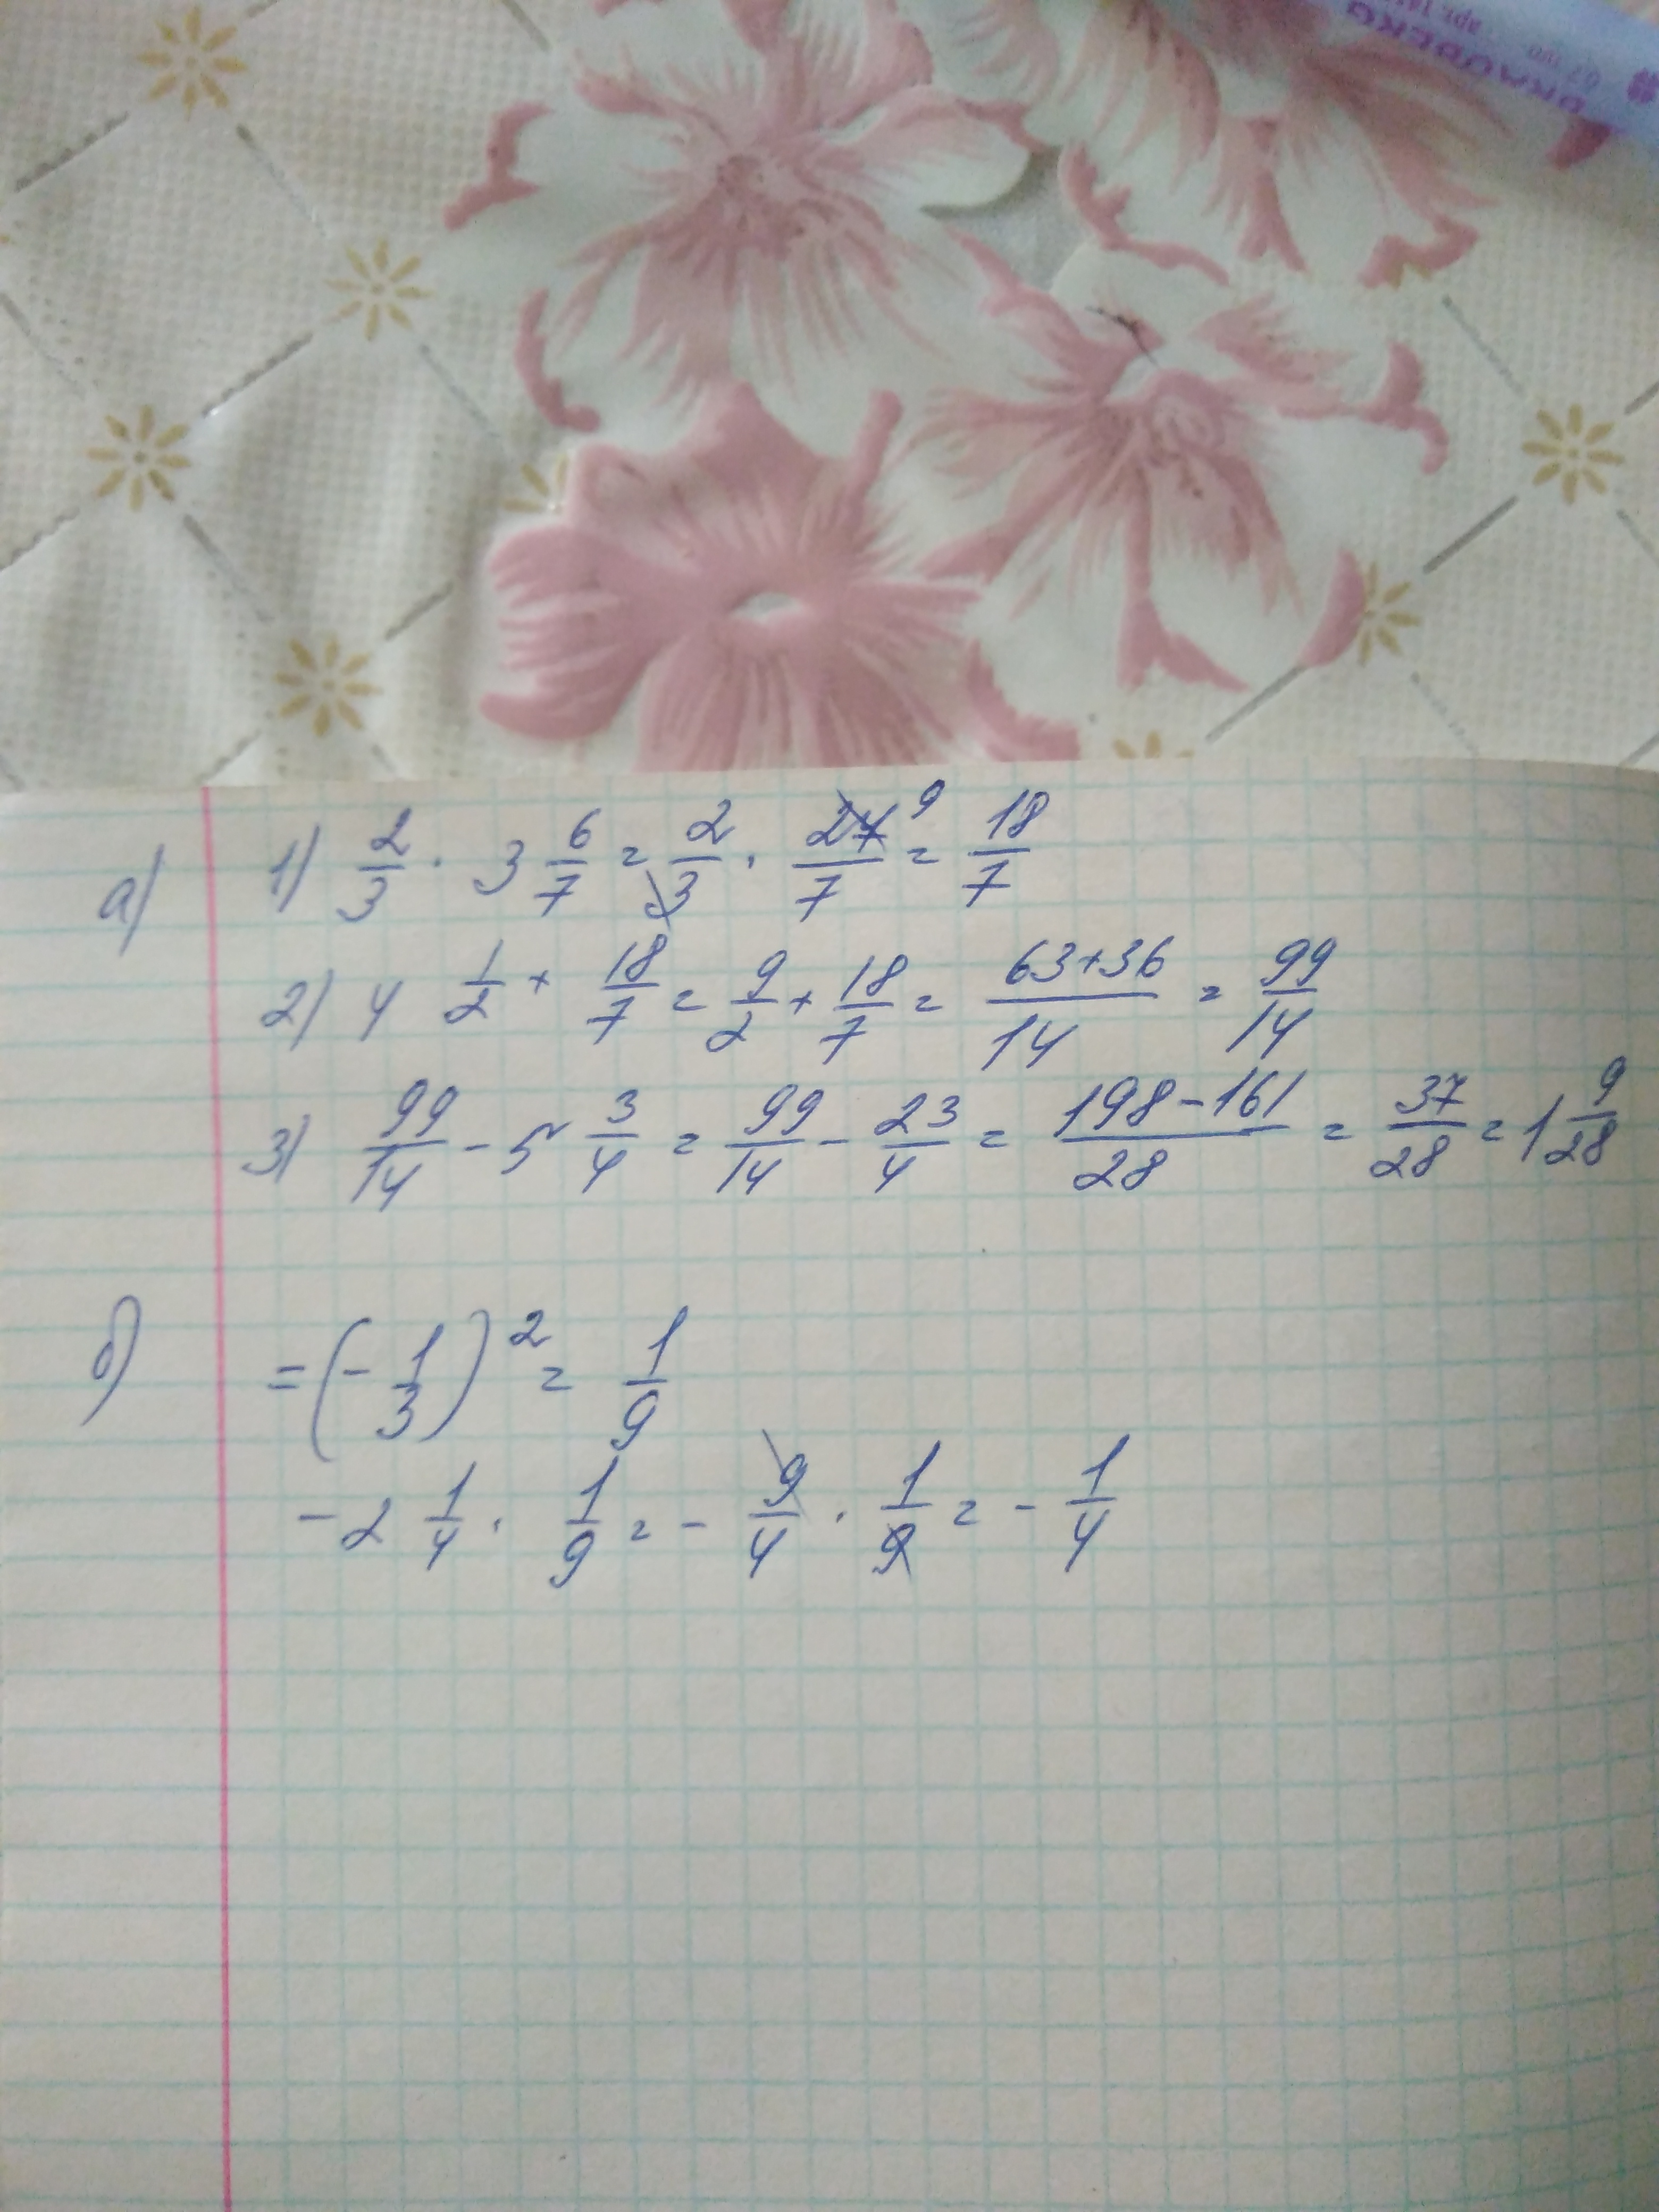 BRAUBERG
а) 1) 2/3 · 3 6/7 = 2/3 · 27/7 9 = 18/7
2) 4 1/2 + 18/7 = 9/2 + 18/7 = 63+36/14 = 99/14
3) 99/14 - 5 3/4 = 99/14 - 23/4 = 198-161/28 = 37/28 = 1 9/28
б) = (- 1/3)² = 1/9
-2 1/4 · 1/9 = - 9/4 · 1/9 = - 1/4